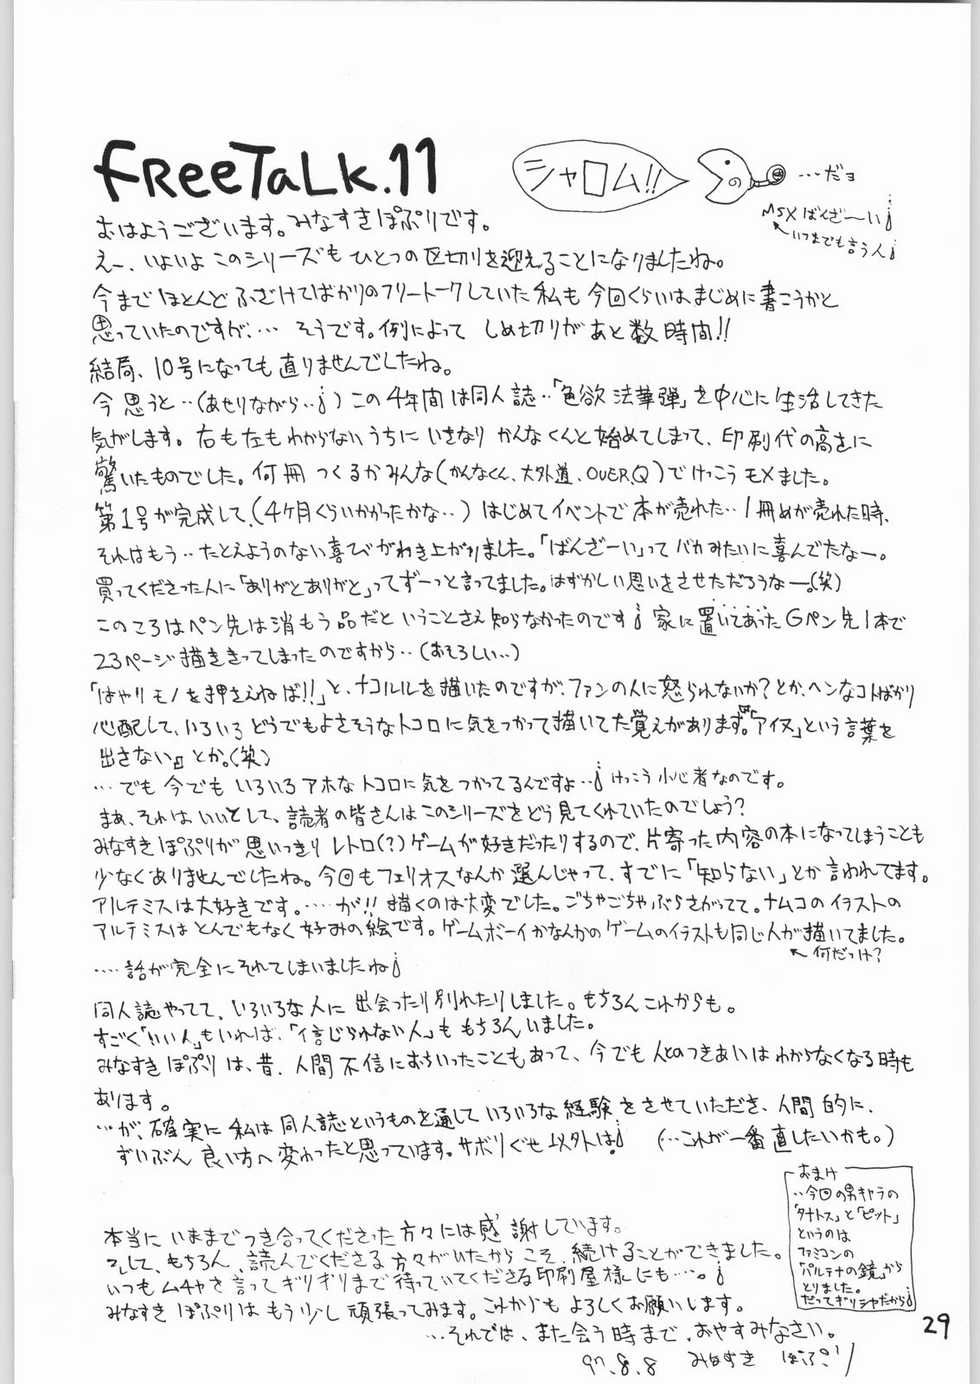 FReeTaLk.11
シャロム!!
の
…だョ
MSXばんざーい
いつまでも言う人
おはようございます。みなすきぽぷりです。
えー、いよいよこのシリーズもひとつの区切りを迎えることになりましたね。
今までほとんどふざけてばかりのフリートークしていた私も今回くらいは、まじめに書こうかと
思っていたのですが、… そうです。例によって しめ切りがあと数時間!!
結局、10号になっても直りませんでしたね。
今思うと‥(あせりながら‥)この4年間は同人誌‥「色欲法華弾」を中心に生活してきた
気がします。右も左もわからないうちにいきなりかんなくんと始めてしまって、印刷代の高さに
驚いたものでした。何冊つくるかみんな(かんなくん、大外道、OVER.Q)でけっこうモメました。
第1号が完成して、(4ヶ月くらいかかったかな‥)はじめてイベントで本が売れた‥1冊めが売れた時、
それはもう‥たとえようのない喜びがわき上がりました。「ばんざーい」ってバカみたいに喜んでたなー。
買ってくださった人に「ありがとありがと」ってずーっと言ってました。はずかしい思いをさせただろうなー。(笑)
このころはペン先は消もう品だということさえ知らなかったのです 家に置いてあったGペン先1本で
23ページ描ききってしまったのですから‥(おそろしい‥)
「はやりモノを押さえねば!!」と、ナコルルを描いたのですが、ファンの人に怒られないか?とか、ヘンなコトばかり
心配して、いろいろどうでもよさそうなトコロに気をつかって描いてた覚えがあります。『「アイヌ」という言葉を
出さない』とか。(笑)
…でも今でもいろいろアホなトコロに気をつかってるんですよ‥ けっこう小心者なのです。
まあ、それはいいとして、読者の皆さんはこのシリーズをどう見てくれていたのでしょう?
みなすきぽぷりが思いっきりレトロ(?)ゲームが好きだったりするので、片寄った内容の本になってしまうことも
少なくありませんでしたね。今回もフェリオスなんか選んじゃって、すでに「知らない」とか言われてます。
アルテミスは大好きです。‥…が!!描くのは大変でした。ごちゃごちゃぶらさがってて。ナムコのイラストの
アルテミスはとんでもなく好みの絵です。ゲームボーイかなんかのゲームのイラストも同じ人が描いてました。
何だっけ?
‥‥話が完全にそれてしまいましたね
同人誌やってて、いろいろな人に出会ったり別れたりしました。もちろんこれからも。
すごく「いい人」もいれば、「信じられない人」ももちろんいました。
みなすきぽぷりは、昔、人間不信におちいったこともあって、今でも人とのつきあいはわからなくなる時も
あります。
‥が、確実に私は同人誌というものを通していろいろな経験をさせていただき、人間的に、
ずいぶん良い方へ変わったと思っています。サボりぐせ以外は! (…これが一番直したいかも。)
おまけ
‥今回の男キャラの
「タナトス」と「ピット」
というのは
ファミコンの
「パルテナの鏡」から
とりました。
だってギリシャだから
本当にいままでつき合ってくださった方々には感謝しています。
そして、もちろん、読んでくださる方々がいたからこそ、続けることができました。
いつもムチャを言ってギリギリまで待っていてくださる印刷屋様にも…。
みなすきぽぷりはもう少し頑張ってみます。これからもよろしくお願いします。
…それでは、また会う時まで、おやすみなさい。
97.8.8 みなすき ぽぷり
29